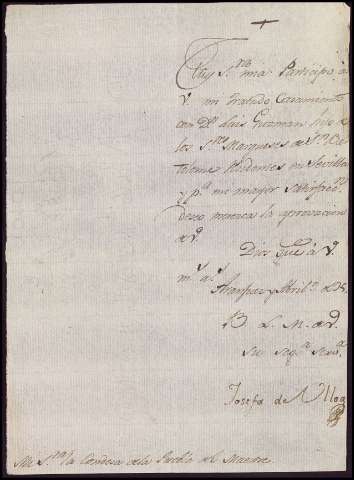 +
Muy S.ra mia Participo à
V. mi tratado Casamiento
con D.n Luis Guzman hijo de
los S.res Marqueses de S.n Bar
tolome Residentes en Sevilla
y p.a mi mayor Satisfac.n
deseo merezca la aprovacion
de V.
Dios Gue à V.
m.s a.s Aranjuez y Abril
B L. M. de V.
su seg.a serv.a
Josefa de Ulloa
Mi S.ra la Condesa de la Puebla del Maestre.